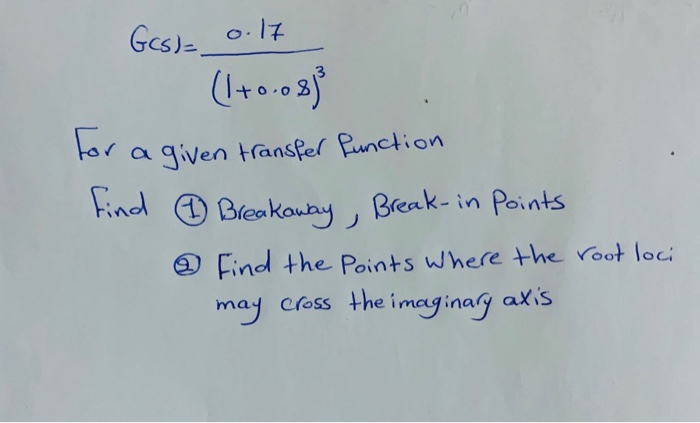 G(s)= 0.17
(1+0.08)³
For a given transfer function
Find ① Breakaway, Break-in Points
② Find the Points where the root loci
may cross the imaginary axis